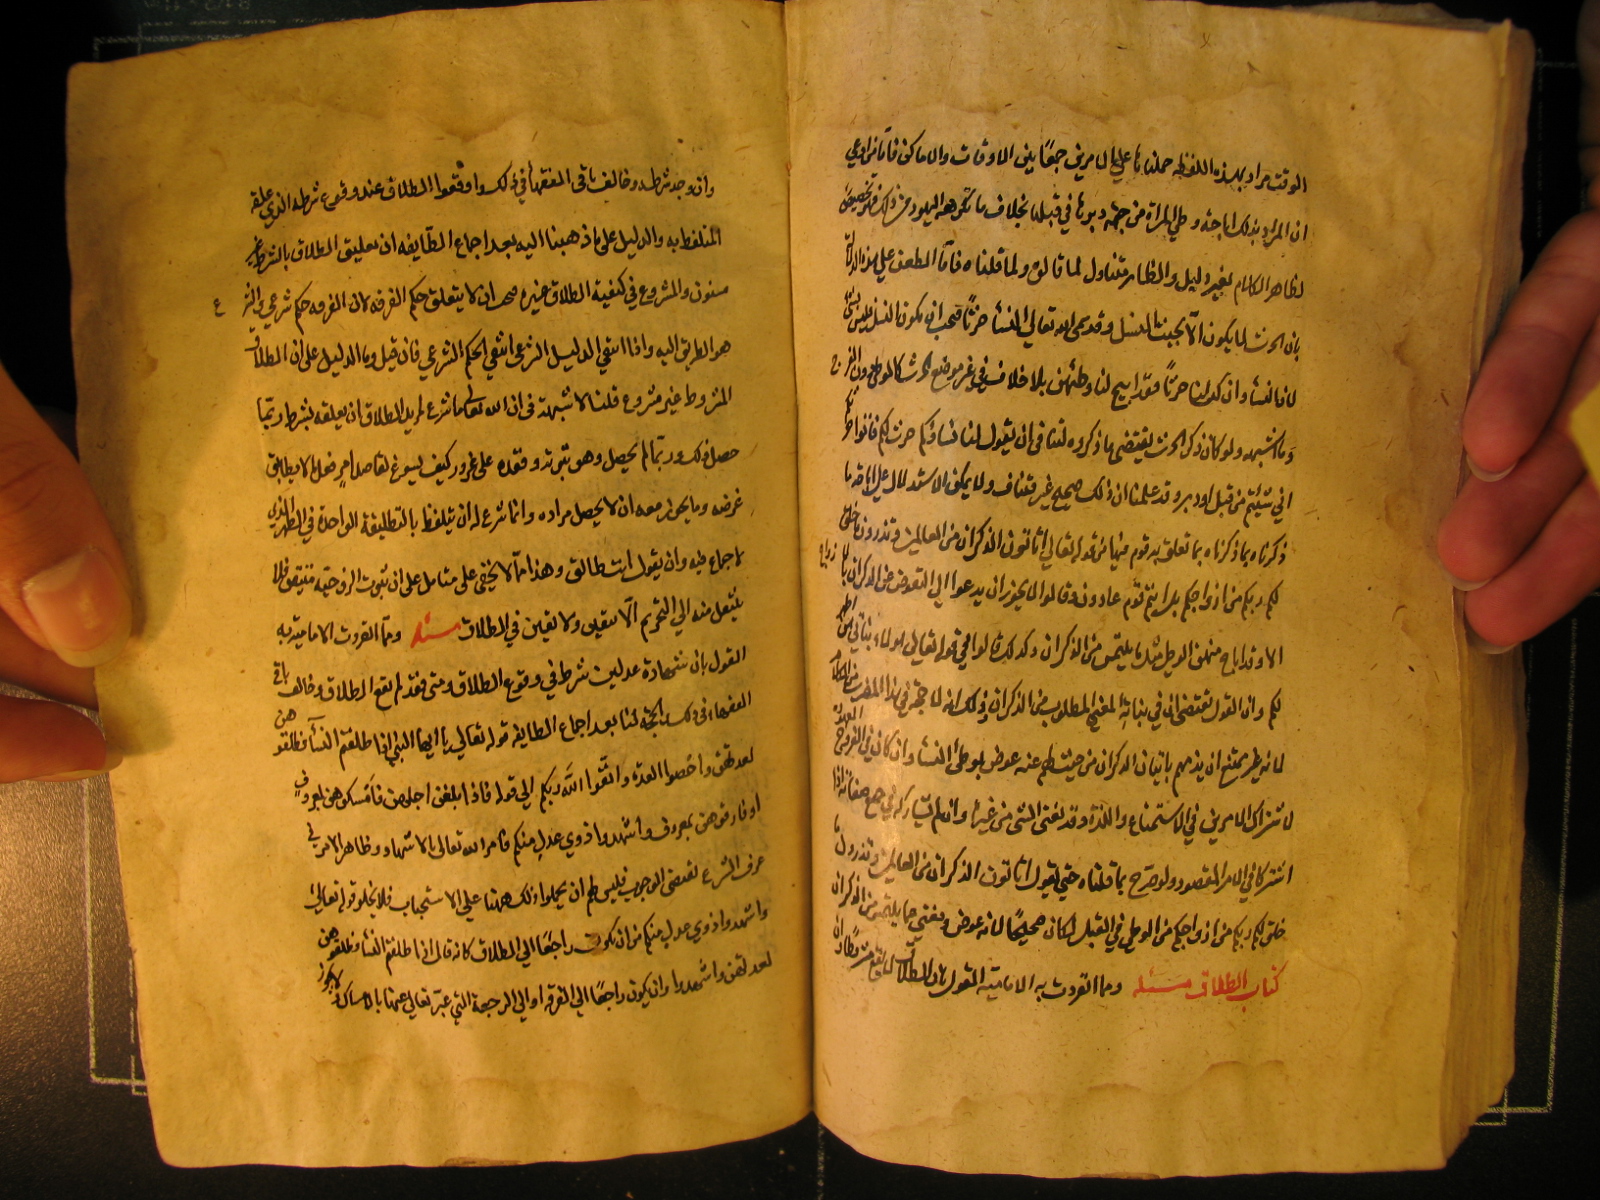 الوقت مراد بهذه اللفظه حملناها علي الامرين جمعًا بين الاوقات والاماكن فاما من ادعي
ان المراد بذلك اباحته وطي المراة من جهة دبرها في قبلها بخلاف ما تكرهه اليهود من ذلك فهو تخصيص
لظاهر الكلام بغير دليل والظاهر متناول لما قالوه ولما قلناه فاما الطعن علي هذه الدلالة
بان الحرث لا يكون الا بحيث النسل وقد سمي الله تعالي النساء حرثًا فيجب ان يكون
لان النساء وان كن لنا حرثًا فقد ابيح لنا وطئهن بلا خلاف في غير موضع الحرث كالوطي دون الفرج
وما اشبهه ولو كان ذكر الحرث يقتضي ما ذكروه لتنافي ان يقول لنا نساؤكم حرث لكم فاتوا حرثكم
اني شئتم من قبل او دبر وقد علمنا ان ذلك صحيح غير متناف ولا يمكن الاستدلال علي اباحة ما
ذكرناه بما ذكرناه بما تعلق به قوم منها من قوله تعالي اتاتون الذكران من العالمين وتذرون ما خلق
لكم ربكم من ازواجكم بل انتم قوم عادون وقالوا لا يجوز ان يدعوا الي التعوض عن الذكران بالازواج
الا وقد اباح منهن الوطي مثل ما يلتمس من الذكران وكذلك قالوا في قوله تعالي هولاء بناتي هن اطهر
لكم وان القول يقتضي ان في بناته المعني المطلوب من الذكران وذلك انه لا حجة في هذا الضرب من الكلام
لانه غير ممتنع ان يذمهم باتيان الذكران من حيث لهم عنه عوض بوطي النساء وان كان في الفروج المعهودة
لاشتراك الامرين في الاستمتاع واللذة وقد يغني الشي عن غيره وان لم يشاركه في جميع صفاته اذا
اشتركا في الامر المقصود ولو صرح بما قلناه حتي يقول اتاتون الذكران من العالمين وتذرون ما
خلق لكم ربكم من ازواجكم من الوطي في القبل لكان صحيحًا لانه عوض ومغني عما يلتمس من الذكران
كتاب الطلاق مسئله ومما انفردت به الامامية القول بان الطلاق لا يقع مشروطًا وان
وان وجد شرطه وخالف باقي الفقهاء في ذلك واوقعوا الطلاق عند وقوع شرطه الذي علقه
المتلفظ به والدليل علي ما ذهبنا اليه بعد اجماع الطايفه ان تعليق الطلاق بالشرط غير
مسنون والمشروع في كيفية الطلاق غيره فيجب ان لا يتعلق حكم الفرقه لان الفرقه حكم شرعي والشرع
هو الطريق اليه واذا انتفي الدليل الشرعي انتفي الحكم الشرعي فان قيل وما الدليل علي ان الطلاق
المشروط غير مشروع قلنا لا شبهة في ان الله تعالي ما شرع لمريد الطلاق ان يعلقه بشرط ربما
حصل ذلك وربما لم يحصل وفقده علي غرور كيف يسوغ لقاصد امر فعل ما لا يطابق
غرضه وما يجوز معه ان لا يحصل مراده وانما شرع له ان يتلفظ بالتطليقة الواحدة في الطهر الذي
لا جماع فيه وان يقول انت طالق وهذا مما لا يخفي علي متامل علي ان ثبوت الزوجية متيقن فلا
ينتقل منه الي التحريم الا بيقين ولا يقين في الطلاق مسئله ومما انفردت الامامية به
القول بان شهادة عدلين شرط في وقوع الطلاق ومتي فقد لم يقع الطلاق وخالف باقي
الفقهاء في ذلك والحجة لنا بعد اجماع الطايفه قوله تعالي يا ايها النبي اذا طلقتم النساء فطلقوهن
لعدتهن واحصوا العدة واتقوا الله ربكم الي قوله فاذا بلغن اجلهن فامسكوهن بمعروف
او فارقوهن بمعروف واشهدوا ذوي عدل منكم فامر الله تعالي بالاشهاد وظاهر الامر في
عرف الشرع يقتضي الوجوب فليس لهم ان يحملوا ذلك ههنا علي الاستحباب فلا يخلو قوله تعالي
واشهدوا ذوي عدل منكم من ان يكون راجعًا الي الطلاق كانه قال اذا طلقتم النساء فطلقوهن
لعدتهن واشهدوا وان يكون راجعًا الي الفرقه او الي الرجعة التي عبر تعالي عنها بالامساك لا يجوز